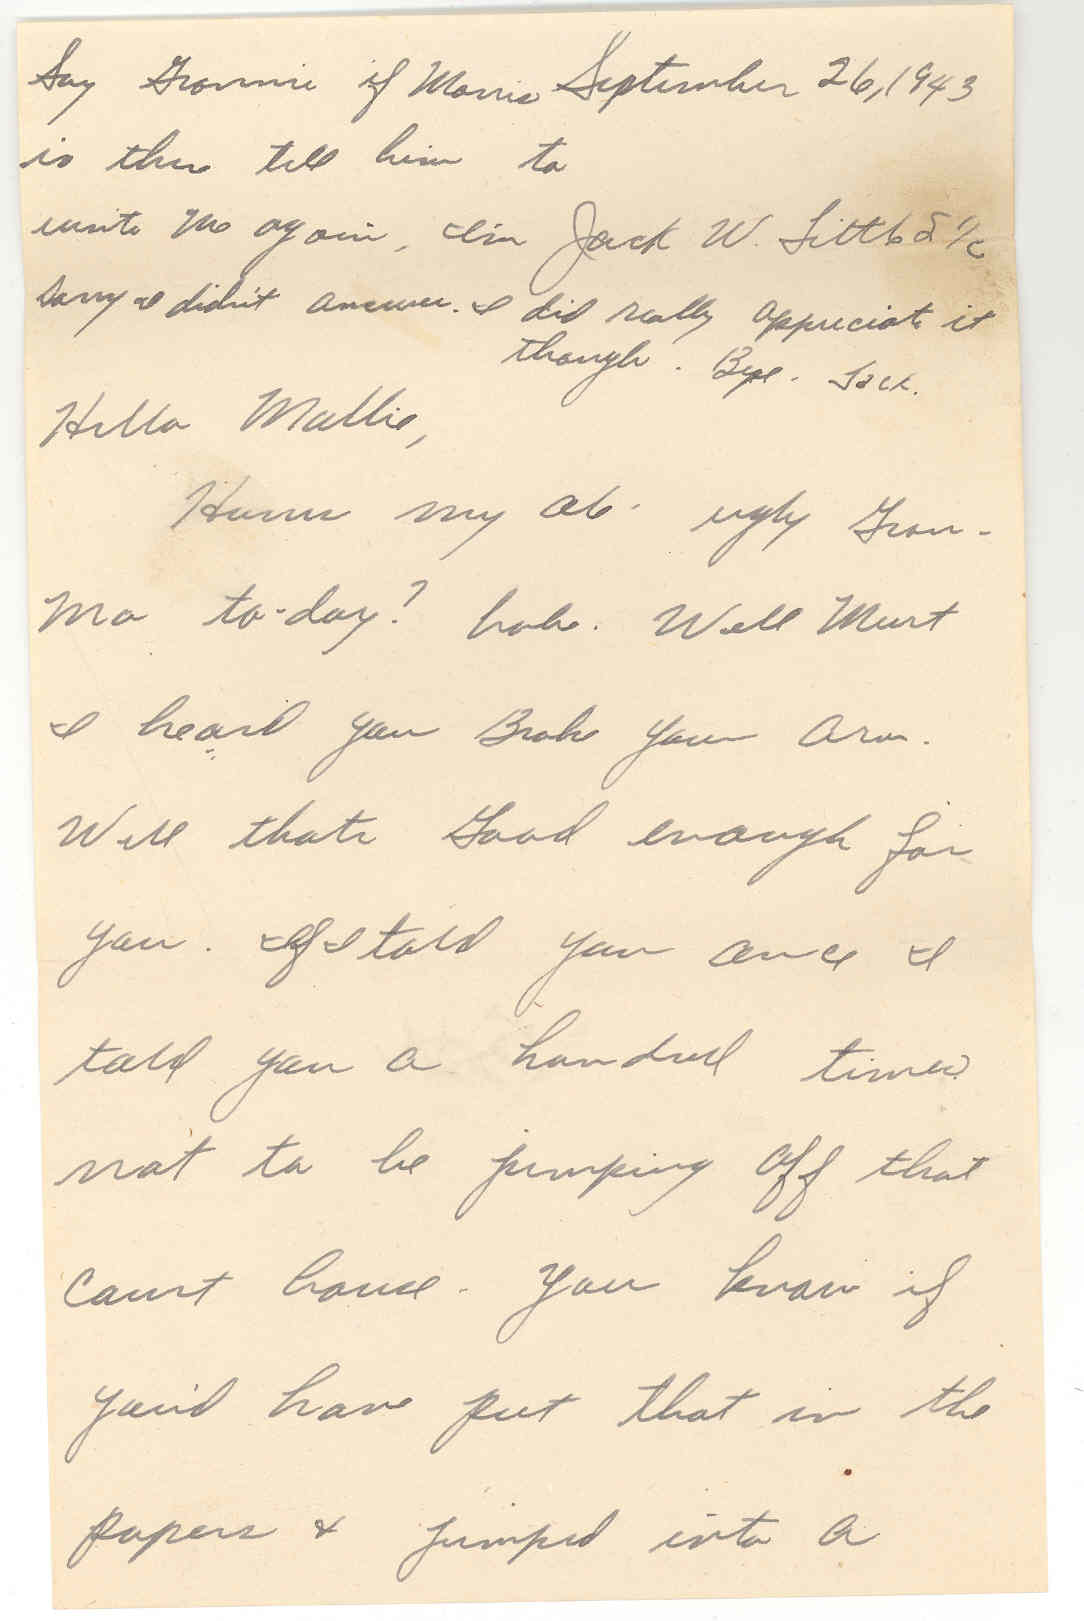 Say Grannie if Morris September 26, 1943
is there tell him to
write me again, I'm Jack W. Little S 1/c
sorry I didn't answer. I did really appreciate it
though. Bye. Jack.
Hello Mallie,
Hows my ol' ugly Gran-
Ma to-day? haha. Well Murt
I heard you Broke your arm.
Well thats Good enough for
you. If I told you once I
told you a hundred times
not to be jumping off that
court house. You know if
you'd have put that in the
papers & jumped into a